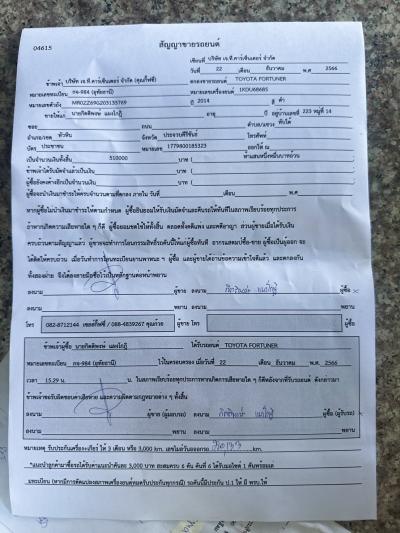 04615
สัญญาขายรถยนต์
เขียนที่ บริษัท เจ.ที.คาร์เซ็นเตอร์ จำกัด
วันที่ 22 เดือน ธันวาคม พ.ศ 2566
ข้าพเจ้า บริษัท เจ.ที.คาร์เซ็นเตอร์ จำกัด ตกลงขายรถยนต์ TOYOTA FORTUNER
หมายเลขทะเบียน กจ-984 (อุทัยธานี) หมายเลขเครื่องยนต์
หมายเลขตัวถัง ปี 2014 สี ดำ
ขายให้แก่ นายกิตติพงษ์ อายุ ปี อยู่บ้านเลขที่ 223 หมู่ที่ 14
ซอย ถนน ตำบล/แขวง ทับใต้
อำเภอ/เขต หัวหิน จังหวัด ประจวบคีรีขันธ์ โทรศัพท์
บัตร ประชาชน หมายเลข 1779800185323 ออกให้ ณ
เป็นจำนวนเงินทั้งสิ้น 510000 บาท ( ห้าแสนหนึ่งหมื่นบาทถ้วน
ข้าพเจ้าได้รับมัดจำแล้วเป็นเงิน บาท (
ผู้ซื้อยังคงค้างอีกเป็นจำนวนเงิน บาท (
ผู้ซื้อจะนำเงินมาชำระให้ครบจำนวนตามที่ตกลง ภายใน วันที่ เดือน พ.ศ
หากผู้ซื้อไม่นำเงินมาชำระให้ตามกำหนด ผู้ซื้อยินยอมให้ริบเงินมัดจำและคืนรถให้ทันทีในสภาพเรียบร้อยทุกประการ
ถ้าหากเกิดความเสียหายใด ๆ ก็ดี ผู้ซื้อยอมชดใช้ให้ทั้งสิ้น ตลอดทั้งคดีแพ่ง และคดีอาญา ส่วนผู้ขายเมื่อได้รับเงิน
ครบถ้วนตามสัญญาแล้ว ผู้ขายจะทำการโอนกรรมสิทธิ์รถคันนี้ให้แก่ผู้ซื้อทันที
ทั้งสองฝ่าย จึงได้ลงลายมือชื่อไว้เป็นหลักฐานต่อหน้าพยาน
ลงนาม ผู้ขาย ลงนาม ผู้ซื้อ
ลงนาม พยาน ลงนาม พยาน
โทร 082-8712144 ผู้ขาย โทร ผู้ซื้อ
ข้าพเจ้าผู้ซื้อ นายกิตติพงษ์ ได้รับรถยนต์ TOYOTA FORTUNER
หมายเลขทะเบียน กจ-984 (อุทัยธานี) ไว้ในครอบครอง เมื่อวันที่ 22 เดือน ธันวาคม พ.ศ. 2566
เวลา 15.29 น. ในสภาพเรียบร้อยทุกประการหากเกิดการเสียหายใด ๆ ก็ดีหลังจากที่รับรถยนต์ ดังกล่าวมา
ข้าพเจ้าขอรับผิดชอบค่าเสียหาย และความผิดตามกฎหมายต่าง ๆ ทั้งสิ้น
ลงนาม ผู้ขาย (ผู้มอบรถ) ลงนาม ผู้ซื้อ (ผู้รับรถ)
ลงนาม พยาน ลงนาม พยาน
หมายเหตุ รับประกันเครื่อง+เกียร์ ให้ 3 เดือน หรือ 3,000 km. เลขไมล์วันออกรถ km.
*แนะนำลูกค้ามาซื้อรถได้รับค่าแนะนำคันละ 3,000 บาท สะสมครบ 6 คัน คันที่ 6 ได้รับมอไซค์ 1 คันพร้อมจด
ทะเบียน